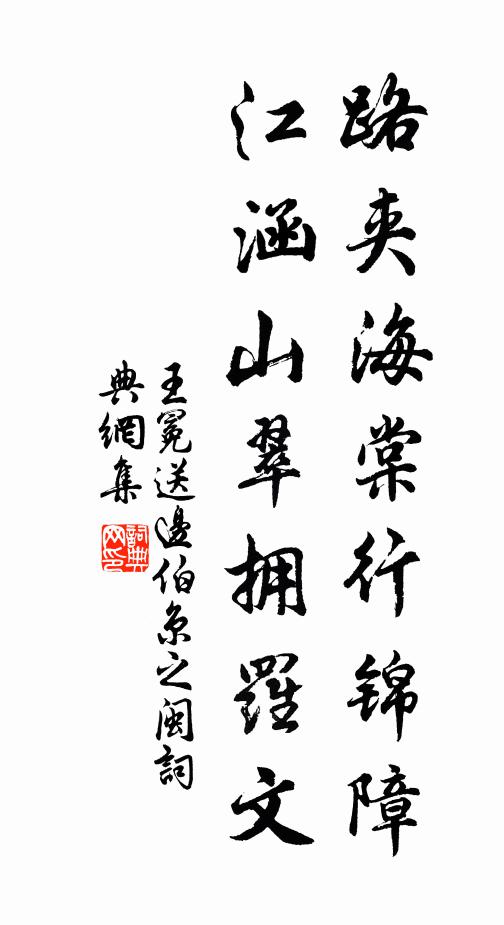 路夹海棠行锦障
江涵山翠拥羅文
王冕送邊伯京之闽詞
典網集
詞典
网印